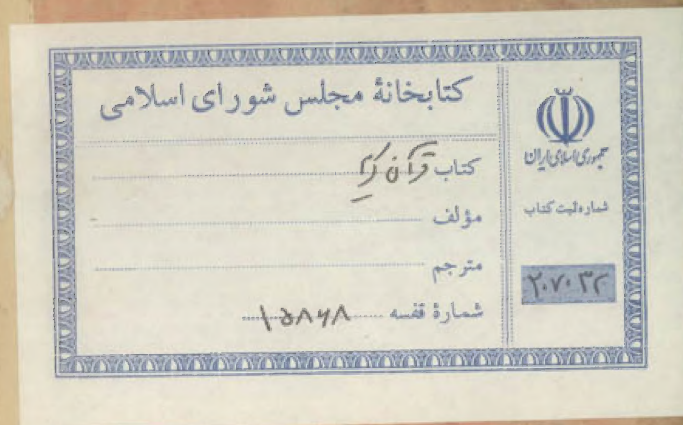 کتابخانهٔ مجلس شورای اسلامی
کتاب قرآن کریم
مؤلف
مترجم
شمارهٔ قفسه ۱۵۸۶۸
جمهوری اسلامی ایران
شماره ثبت کتاب
۲۰۷۰۳۲